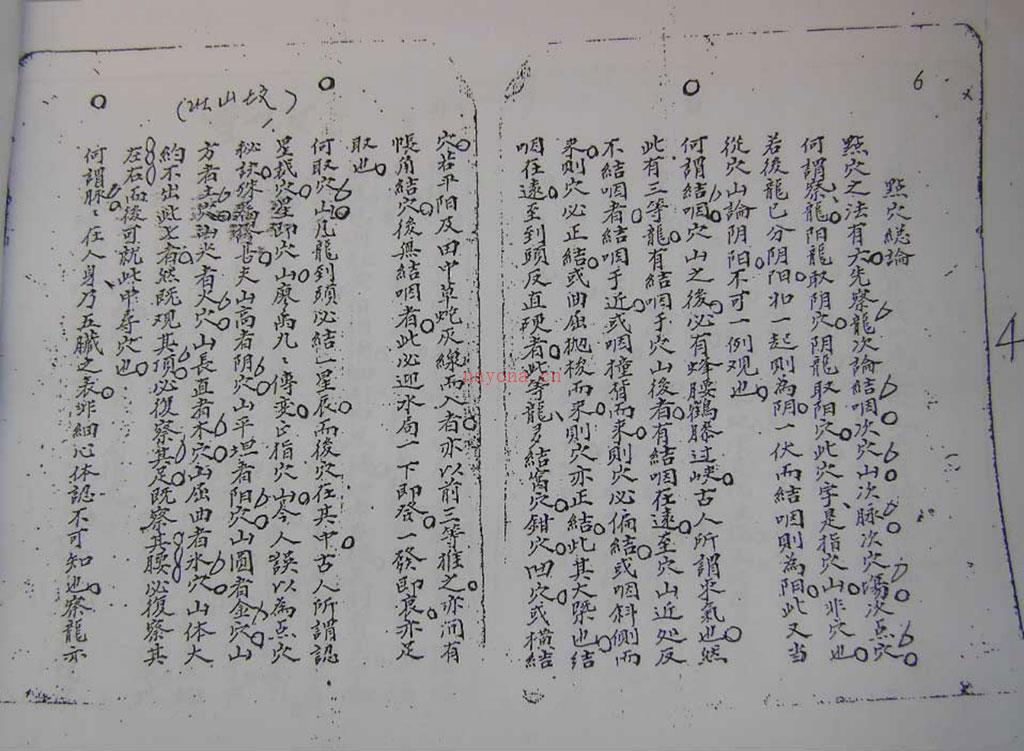 6
點穴總論
點穴之法有六先察龍次論結咽次穴山次脉次穴場次点穴
何謂察龍阳龍取阴穴阴龍取阳穴此穴字是指穴山非穴也
若後龍已分阴阳和一起則為阴一伏而結咽則為阳此又當
從穴山論阴阳不可一例观也
何謂結咽穴山之後必有蜂腰鶴膝过峡古人所謂束氣也然
此有三等龍有結咽于穴山後者有結咽在遠至穴山近处反
不結咽者結咽于近或咽撞背而来則穴必偏結或咽斜側而
来則穴必正結或曲屈抛梭而来則穴亦正結此其大槩也結
咽在遠至到頭反直硬者此等龍多結窩穴鉗穴凹穴或橫結
穴若平阳及田中草蛇灰線而入者亦以前三等推之亦间有
帳角結穴後無結咽者此必迎水局一下即發一發即衰亦足
取也
何取穴山凡龍到頭必結一星辰而後穴在其中古人所謂認
星裁穴星即穴山廖禹九〻傳变正指穴山今人誤以為点穴
秘訣殊喜夫山高者阴穴山平坦者阳穴山圓者金穴山
方者土尖者火穴山長直者木穴山屈曲者水穴山体大
約不出此七者然既观其頂必復察其足既察其腰必復察其
左右而後可就此中尋穴也
何謂脉〻在人身乃五臟之表非細心体認不可知也察龍亦
4
nayona.cn